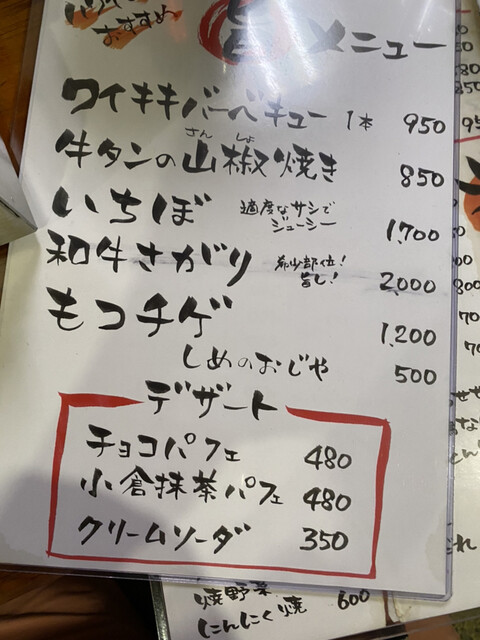 おすすめ
旨メニュー
ワイキキバーベキュー 1本 950
さん しょ
牛タンの山椒焼き 850
いちぼ 適度なサシで
ジューシー 1,700
和牛さがり 希少部位!
旨し! 2,000
もつチゲ 1,200
しめのおじや 500
デザート
チョコパフェ 480
小倉抹茶パフェ 480
クリームソーダ 350
焼野菜 600
にんにく焼